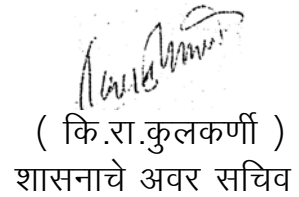 ( कि.रा.कुलकर्णी )
शासनाचे अवर सचिव